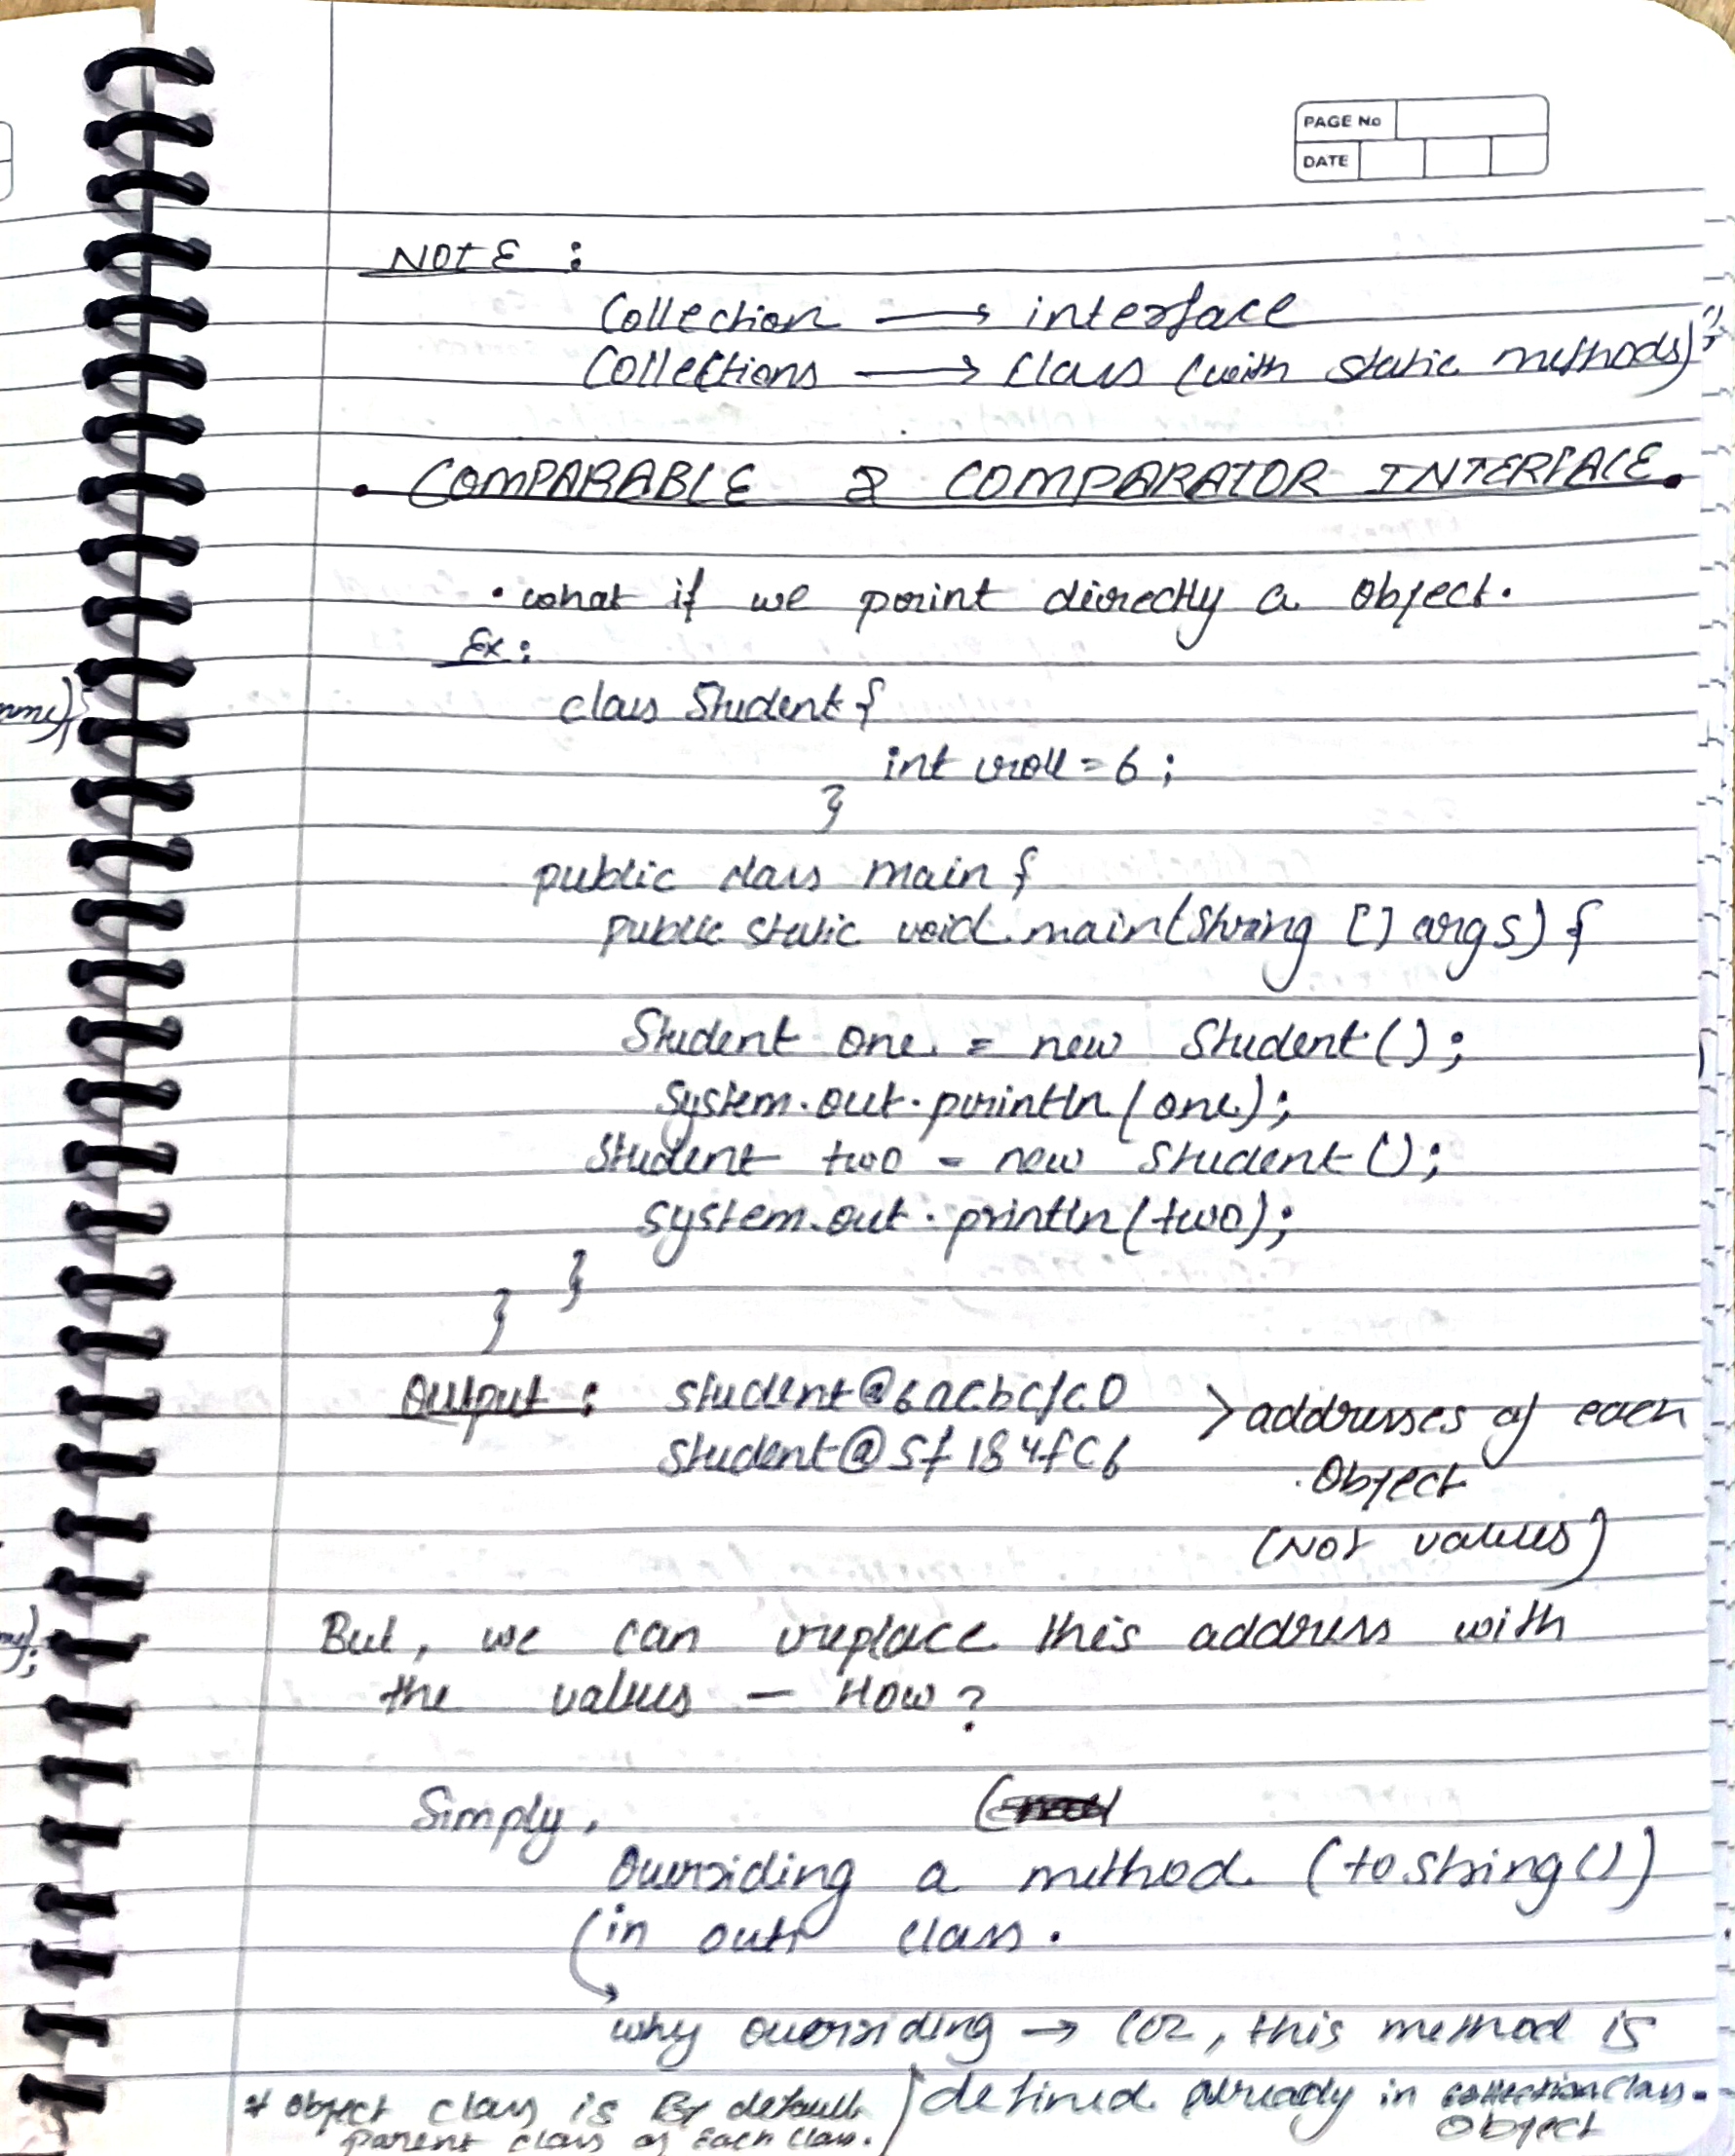 PAGE No
DATE
NOTE :
Collection → interface
Collections → class (with static methods)
• COMPARABLE & COMPARATOR INTERFACE •
• what if we print directly a object.
Ex :
class Student {
int roll = 6 ;
}
public class main {
public static void main(String [] args) {
Student one = new Student() ;
System.out.println(one) ;
Student two = new Student() ;
System.out.println(two) ;
}
}
Output : > addresses of each
Object
(NOT values)
But, we can replace this address with
the values — How ?
Simply,
Overriding a method (toString())
in our class .
why overriding → Coz, this method is
defined already in collection class.
Object
* Object class is By default
parent class of Each class.